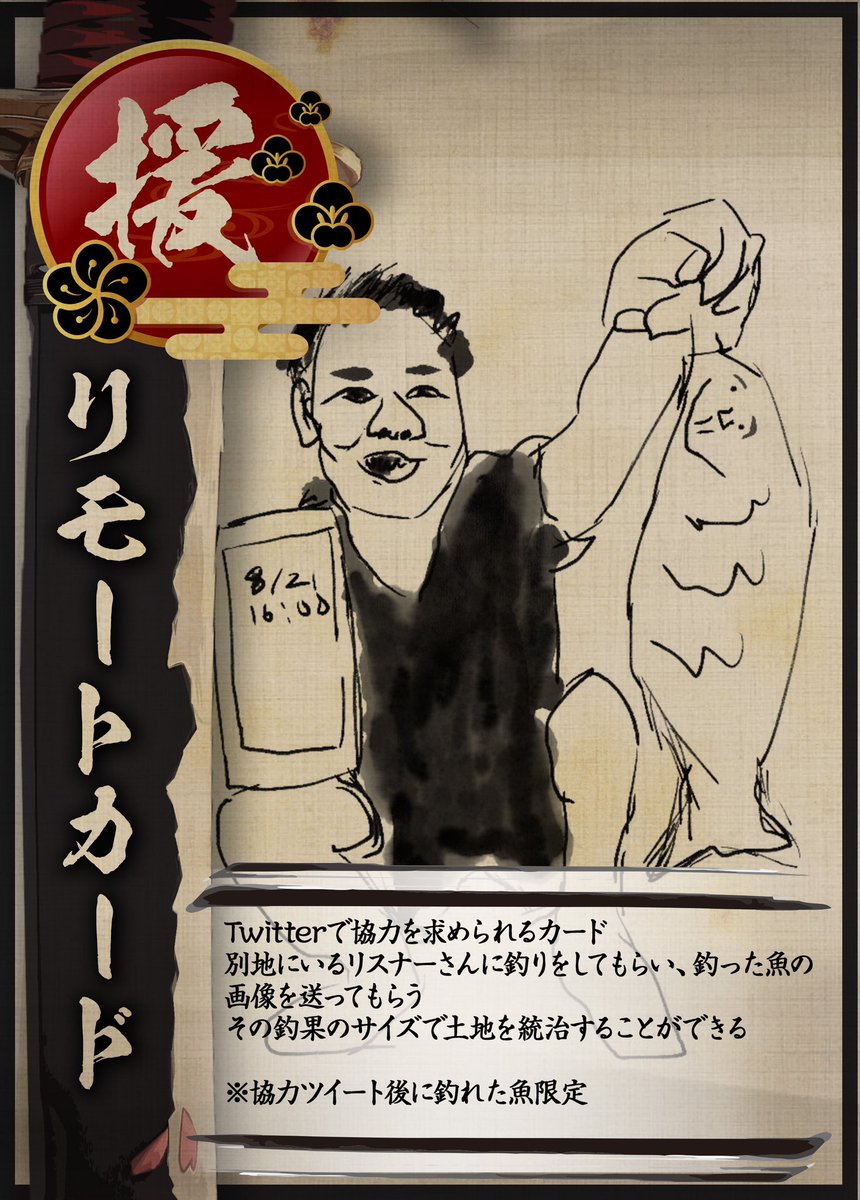 援
リモートカード
8/21
16:00
Twitterで協力を求められるカード
別地にいるリスナーさんに釣りをしてもらい、釣った魚の
画像を送ってもらう
その釣果のサイズで土地を統治することができる
※協力ツイート後に釣れた魚限定